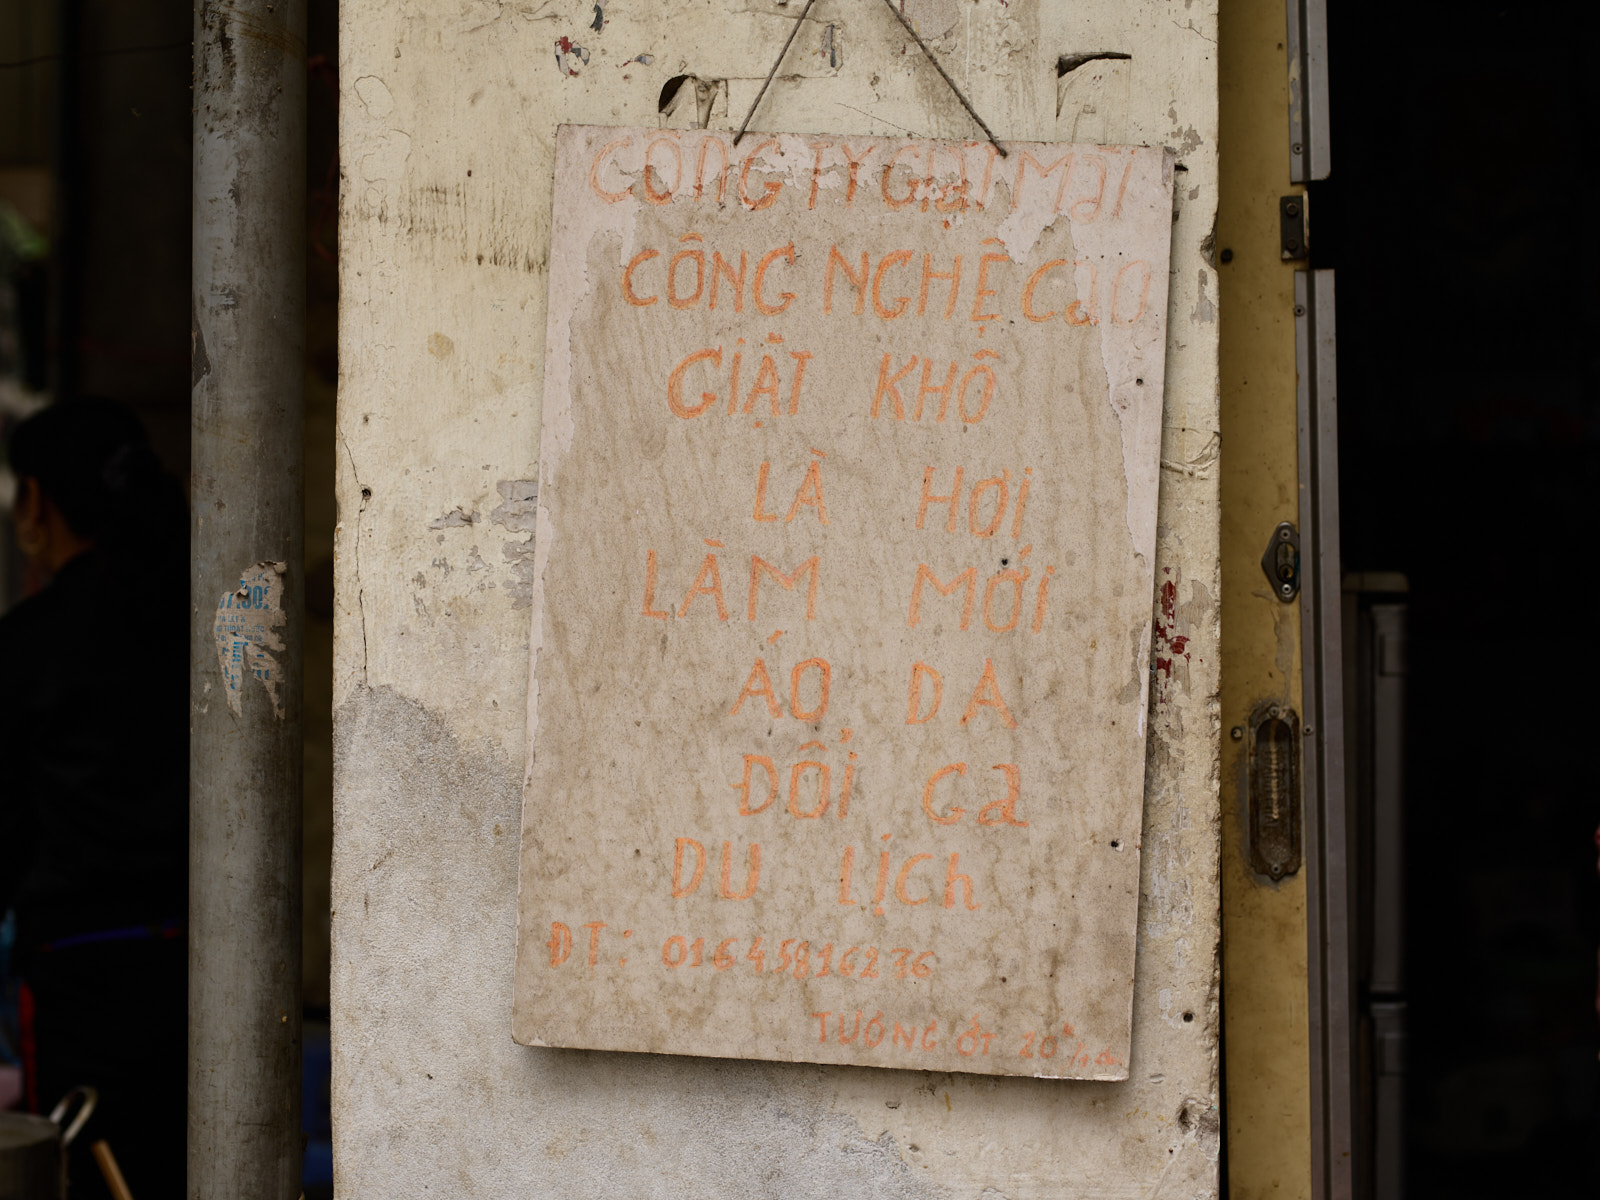 CÔNG TY GIẶT MaI
CÔNG NGHỆ CaO
GIẶT KHÔ
LÀ HƠI
LÀM MỚI
ÁO DA
ĐỒI Ga
DU LỊCh
ĐT: 01645816236
TƯƠNG ỚT 20